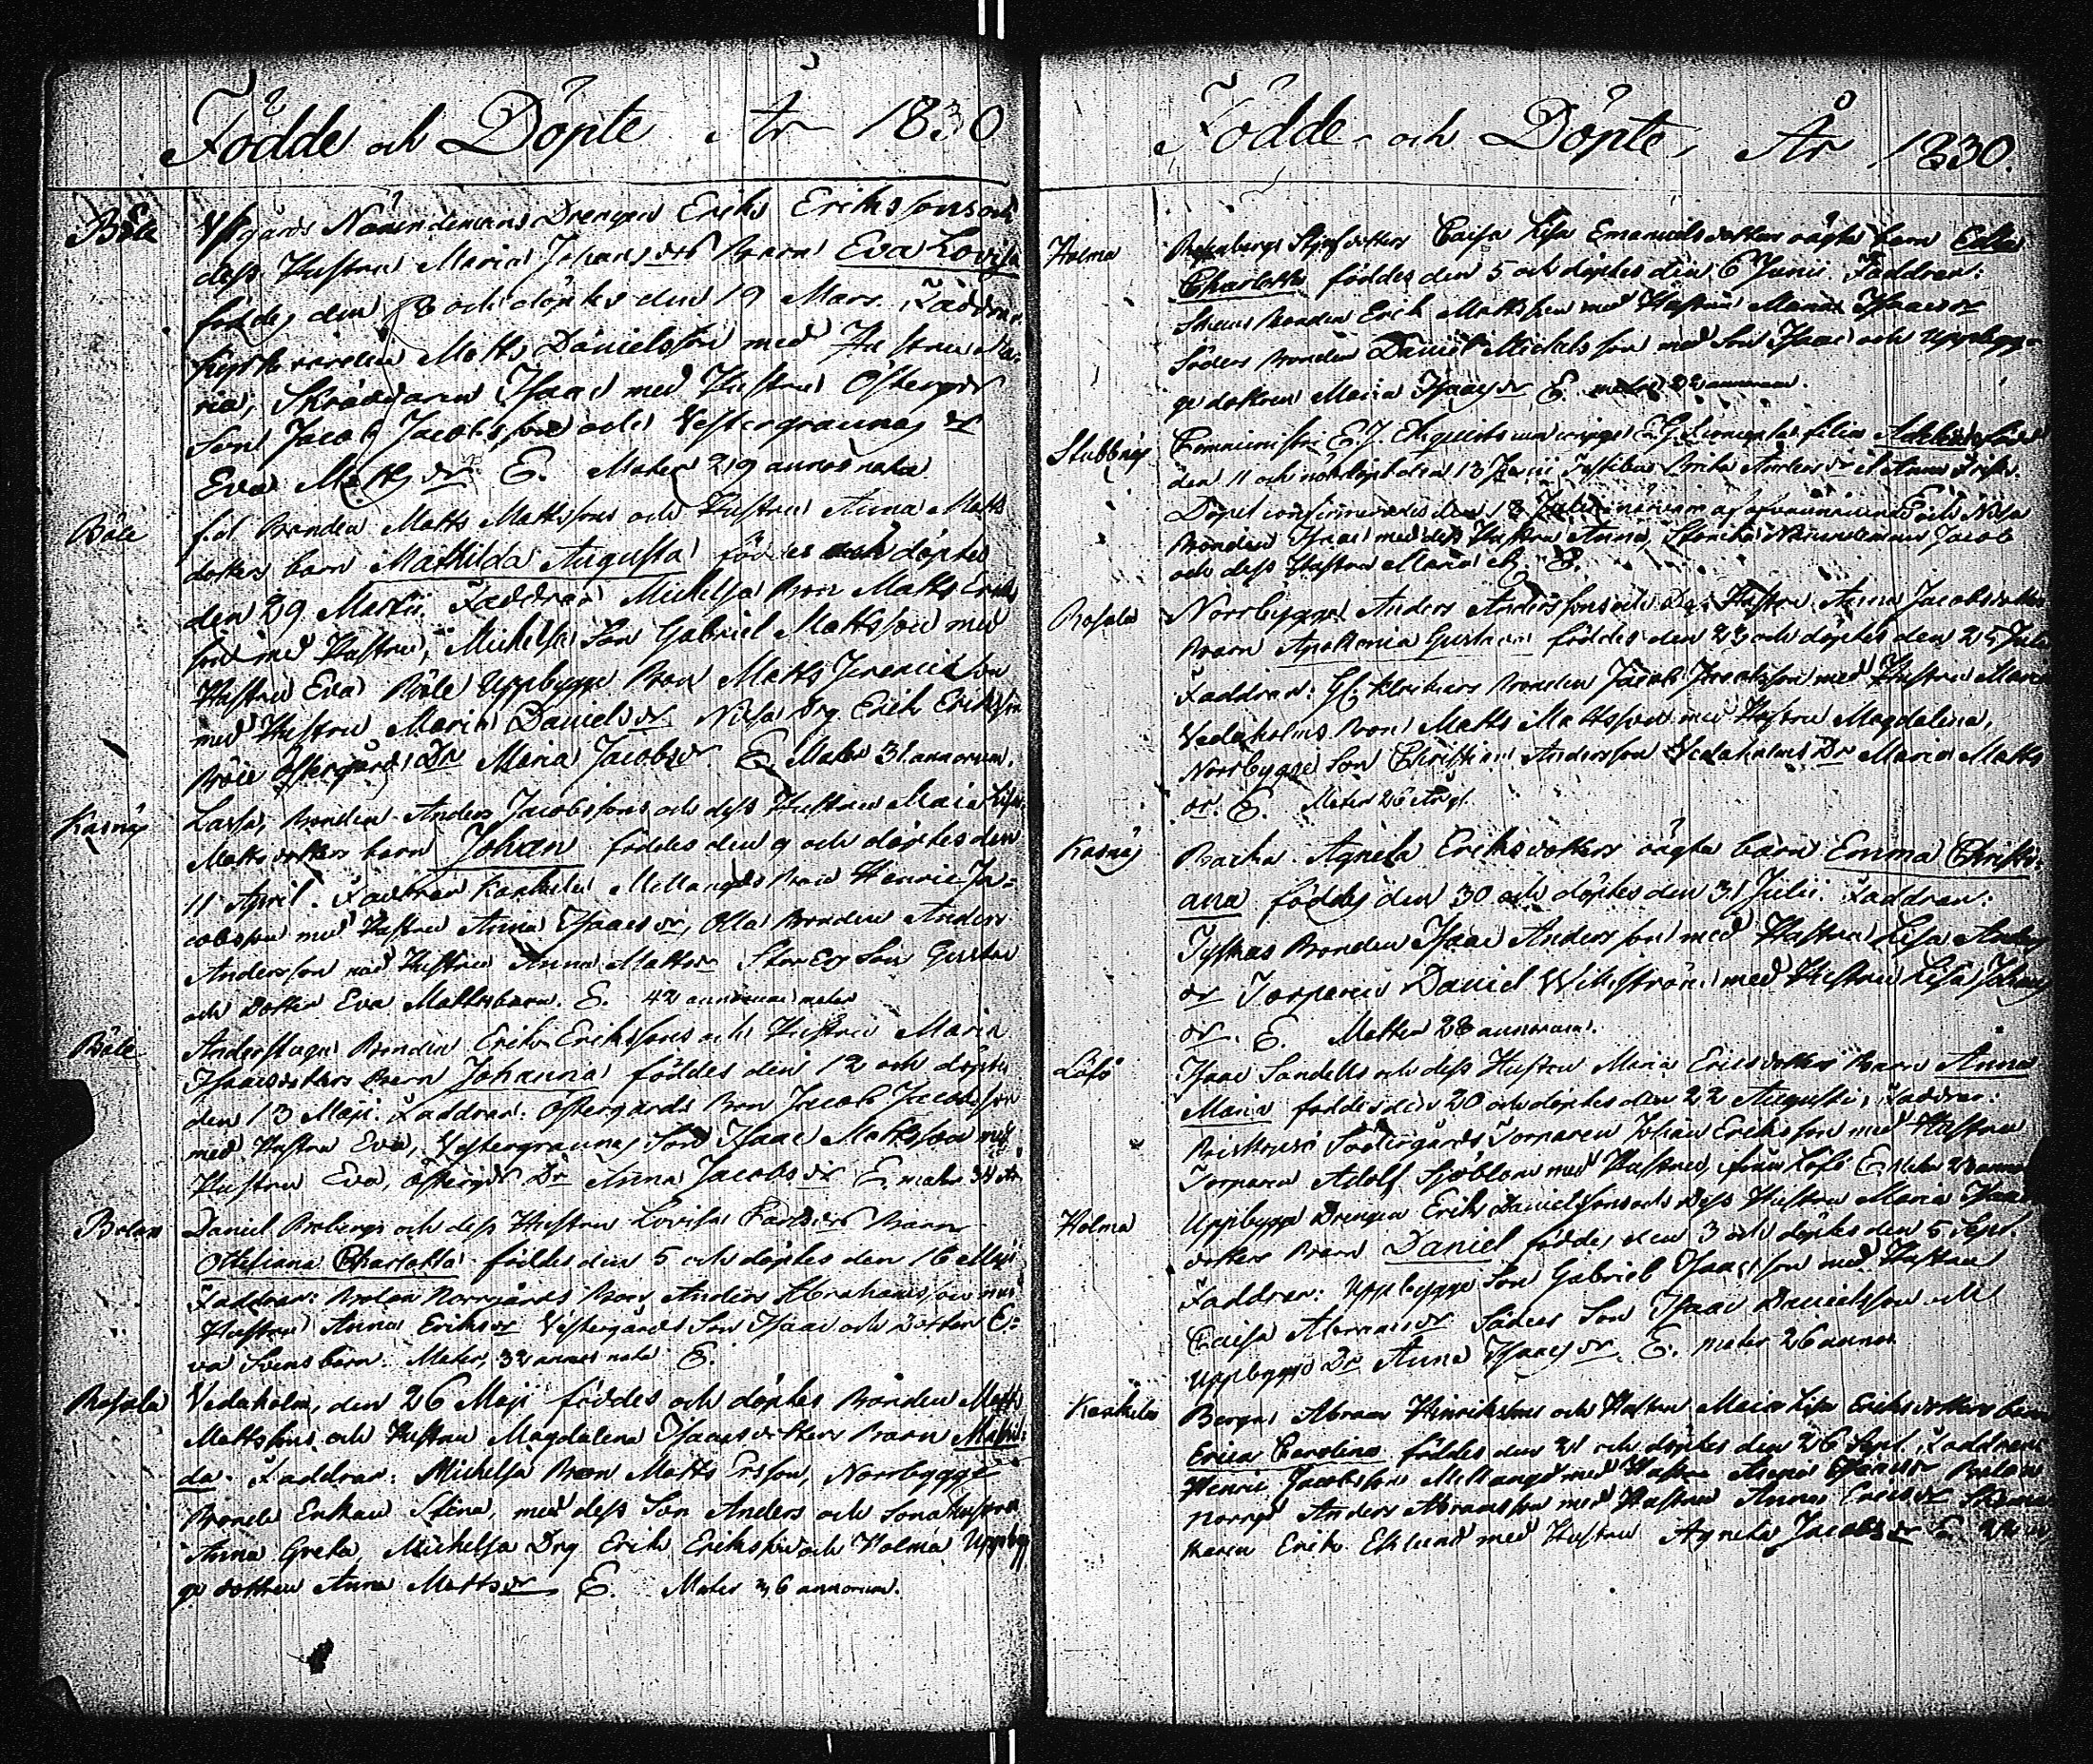 Födde och Döpte År 1830
Böle
Uppgårds Nämndemans Drengen Eriks Erikssons och
dess Hustru Maria Johans dr Barn Eva Lovisa
föddes den 18 och döptes den 19 Mars. Faddrar
Kyrkovärden Matts Danielsson med Hustru Ma-
ria, Skräddaren Isaac med Hustru Östergrds
Son Jacob Jacobsson och Vestergraunas dr
Eva Matts dr E. Mater 29 annos nata
Böle
f.d. Bonden Matts Mattssons och Hustru Anna Matts
dotters barn Mathilda Augusta föddes och döptes
den 29 Martii Faddrar Michelsa Bon Matts Eriks
son med Hustru, Michelsa Son Gabriel Mattsson med
Hustru Eva Böle Uppbygge Bon Matts Jeremiasson
med Hustru Maria Daniels dr Nisas Drg Erik Eriksson
Böle Östergårds Dr Maria Jacobs dr E. Mater 31 annorum.
Kasnäs
Lassa, Bonden Anders Jacobssons och dess Hustru Maria Lisa
Mattsdotters barn Johan föddes den 9 och döptes den
11 April. Faddrar Kaxkela Mellangrds Bon Henric Ja-
cobsson med Hustru Anna Isaacs dr, Olla Bonden Anders
Andersson med Hustru Anna Matts dr Son Gustav
och Dotter Eva Mattsbarn. E. 42 annorum mater
Böle
Anderstugu Bonden Erik Erikssons och Hustru Maria
Isaacsdotters Barn Johanna föddes den 12 och döptes
den 13 Maji. Faddrar: Östergårds Bon Jacob Jacobsson
med Hustru Eva, Vestergraunas Son Isaac Mattsson med
Hustru Eva, Östergrds Dr Anna Jacobs dr E. mater 34 år
Bolax
Daniel Brobergs och dess Hustru Lovisa Carls dr Barn
Otteliana Charlotta föddes den 5 och döptes den 16 Maji
Faddrar: Bolax Norrgårds Bon Anders Abrahamsson med
Hustru Anna Eriks dr Vestergårds Son Isaac och Dotter E-
va Svens barn. Mater, 32 annos nata E.
Rosala
Vedaholm, den 26 Maji föddes och döptes Bonden Matts
Mattssons och Hustru Magdalena Isaacsdotters Barn Mathil-
da. Faddrar: Michelsa Bon Matts Ersson, Norrbygge
Bonde Enkan Stina, med dess Son Anders och Sonahustrun
Anna Greta, Michelsa Drg Erik Eriksson och Holma Uppbyg
ge dottren Anna Matts dr E. Mater 36 annorum.
Födde och Döpte, År 1830.
Holma
Stjufdotters Caisa Lisa Emanuelsdotters oägta barn Edla
Charlotta föddes den 5 och döptes den 6 Junii Faddrar:
Bonden Erik Mattsson med Hustru Maria Isaacs dr
Söders Bonden Daniel Michelsson med Son Isaac och Uppbyg-
ge dottren Maria Isaacs dr E. mater 22 annorum.
Stubbnäs
filia
den 11 och nöddöpt den 13 Junii Testibus Brita Anders dr et Anna
Dopet confirmerades den 18 Julii i närvaro af
Bonden Isaac med dess Hustru Anna, Nämndeman Jacob
och dess Hustru Maria E.
Rosala
Norrbygge Anders Anderssons och Dess Hustru Anna Jacobsdotters
Barn Apollonia Gustava föddes den 23 och döptes den 25 Julii
Faddrar: Bonden Jacob Jacobsson med Hustru Maria
Vedaholms Bon Matts Mattsson med Hustru Magdalena,
Norrbygge Son Christian Andersson Vedaholms Dr Maria Matts
dr. E. Mater 26 årig.
Kasnäs
Backa Agneta Eriksdotters oägta barn Emma Christi-
ana föddes den 30 och döptes den 31 Julii. Faddrar:
Tyskas Bonden Isaac Andersson med Hustru Lisa Anders
dr Torparen Daniel Wikström med Hustru Lisa Johans
dr. E. Mater 28 annorum.
Löfö
Isaac Sandells och dess Hustru Maria Ericsdotters Barn Anna
Maria föddes den 20 och döptes den 22 Augusti, Faddrar:
Söderårds Torparen Johan Eriksson med Hustru
Torparen Adolf Sjöblom med Hustru från Löfö E. Mater 23 annor
Holma
Uppbygge Drengen Erik Danielssons och Dess Hustru Maria Isaacs
dotters Barn Daniel föddes den 3 och döptes den 5 Sept.
Faddrar: Uppbygge Son Gabriel Isaacsson med Hustru
Caisa Söders Son Isaac Danielsson och
Uppbygge Dr Anna Isaacs dr E. mater 26 annor.
Kaxkela
Bergas Abram Hinrikssons och Hustru Maria Lisa Eriksdotters barn
Erica Carolina föddes den 21 och döptes den 26 Sept. Faddrar:
Henric Jacobsson Mellangrd med Hustru Anna Isaacs dr Bolax
Norrgrd Anders Abramsson med Hustru Anna Erics dr
Erik Eklund med Hustru Agneta Jacobs dr E.